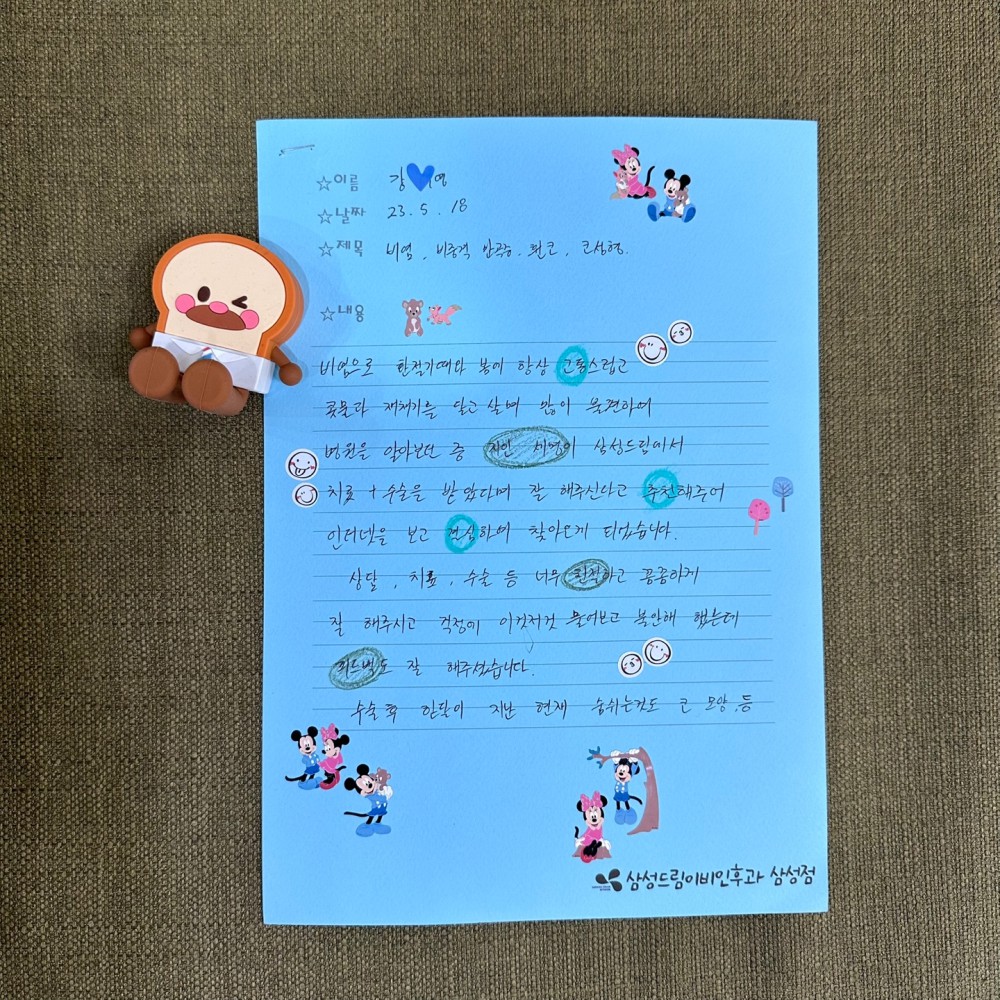 ☆이름 강 영
☆날짜 23. 5. 18
☆제목 비염, 비중격 만곡증. 휜코, 코성형.
☆내용
비염으로 환절기때와 봄이 항상 고통스럽고
콧물과 재채기를 달고살며 많이 불편하여
병원을 알아보던 중 지인 이 삼성드림에서
치료 + 수술을 받았다며 잘 해주신다고 추천해주어
인터넷을 보고 결심하며 찾아오게 되었습니다.
상담, 치료, 수술 등 너무 친절하고 꼼꼼하게
잘 해주시고 걱정이 이것저것 물어보고 불안해 했는데
피드백도 잘 해주셨습니다.
수술후 한달이 지난 현재 숨쉬는것도 코 모양,등
삼성드림이비인후과 삼성점